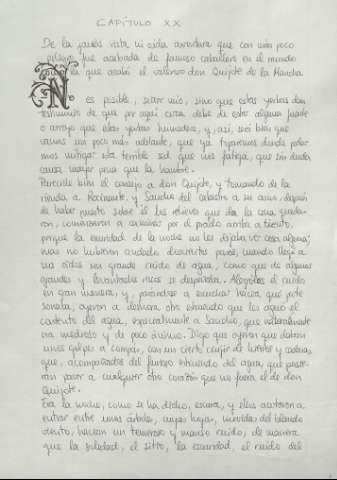 CAPÍTULO XX
De la jamás vista ni oída aventura que con más poco
peligro fue acabada de famoso caballero en el mundo
como la que acabó el valeroso don Quijote de la Mancha
N
es posible, señor mío, sino que estas yerbas dan
testimonio de que por aquí cerca debe de estar alguna fuente
o arroyo que estas yerbas humedece, y, así, será bien que
vamos un poco más adelante, que ya toparemos donde poda-
mos mitigar esta terrible sed que nos fatiga, que sin duda
causa mayor pena que la hambre.
Parecióle bien el consejo a don Quijote, y tomando de la
rienda a Rocinante, y Sancho del cabestro a su asno, después
de haber puesto sobre él los relieves que de la cena queda-
ron, comenzaron a caminar por el prado arriba a tiento,
porque la escuridad de la noche no les dejaba ver cosa alguna;
mas no hubieron andado doscientos pasos, cuando llegó a
sus oídos un grande ruido de agua, como que de algunos
grandes y levantados riscos se despeñaba. Alegróles el ruido
en gran manera, y, parándose a escuchar hacia qué parte
sonaba, oyeron a deshora otro estruendo que les aguó el
contento del agua, especialmente a Sancho, que naturalmente
era medroso y de poco ánimo. Digo que oyeron que daban
unos golpes a compás, con un cierto crujir de hierros y cadenas,
que, acompañados del furioso estruendo del agua, que pusie-
ran pavor a cualquier otro corazón que no fuera el de don
Quijote.
Era la noche, como se ha dicho, escura, y ellos acertaron a
entrar entre unos árboles, cuyas hojas, movidas del blando
viento, hacían un temeroso y manso ruido, de manera
que la soledad, el sitio, la escuridad, el ruido del